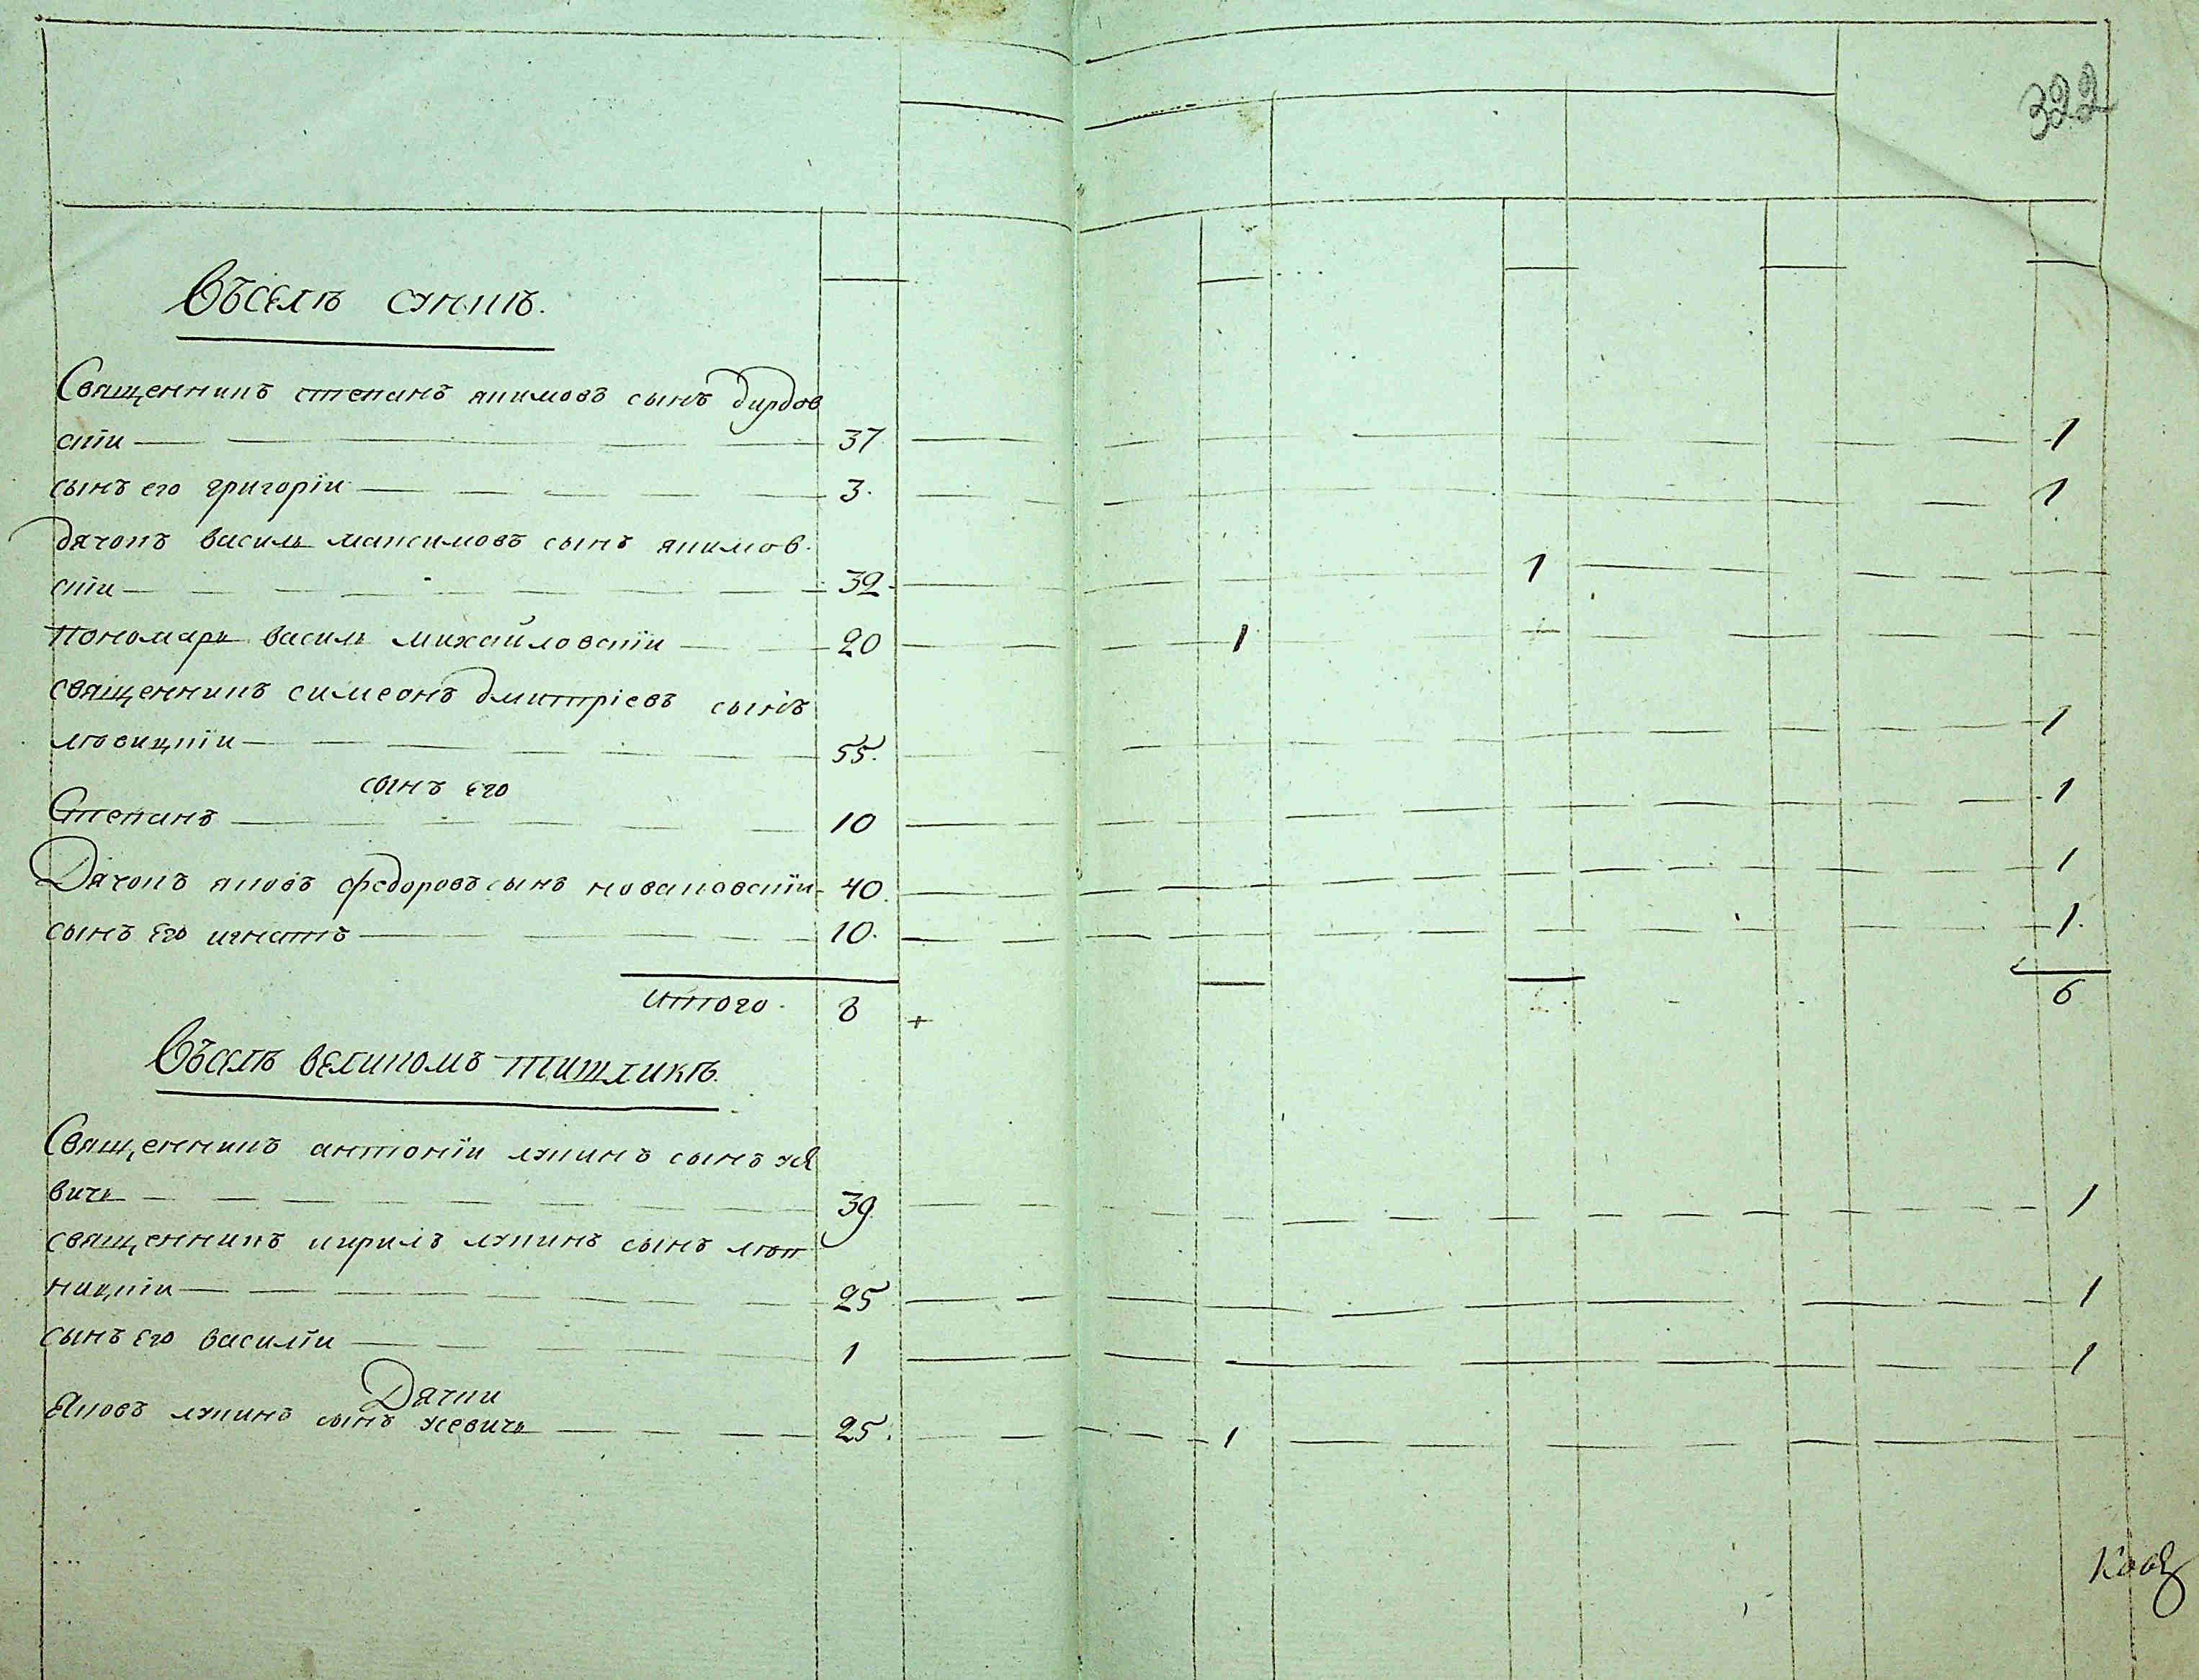 322
Въселѣ сункѣ.
Священникъ степанъ якимовъ сынъ дирдов
скїи 37 1
сынъ его григорїи 3. 1
дячокъ василь максимовъ сынъ якимов
скїи 32 1
Пономарь василь михайловскїи 20 1
священникъ симеонъ дмитрїевъ сынъ
ловицкїи 55. 1
сынъ его
Степанъ 10 1
Дячокъ яковъ федоровъ сынъ новаковскїи 40. 1
сынъ его игнатъ 10. 1.
итого. 8 6
Въселѣ великомъ ташликѣ.
Священникъ антонїи лукинъ сынъ
вичь 39 1
священникъ кирилъ лукинъ сынъ
ницкїи 25 1
сынъ его василїи 1 1
Дячки
Яковъ лукинъ сынъ 25. 1